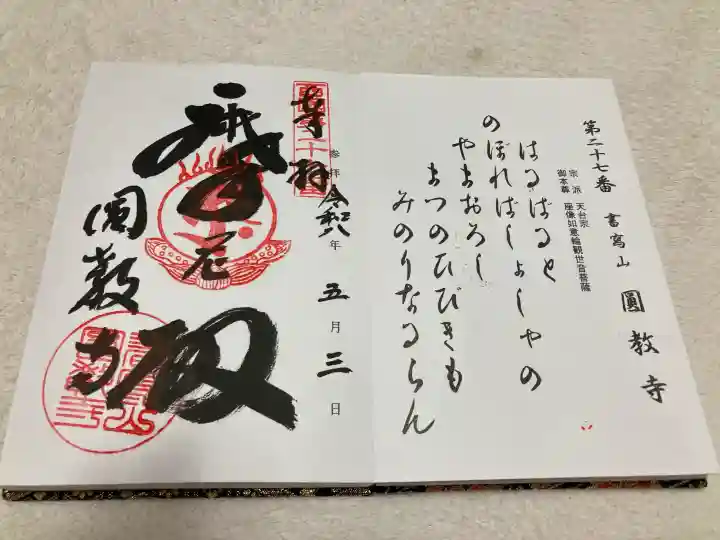 第二十七番 書寫山 圓教寺
宗派 天台宗
御本尊 座像如意輪観世音菩薩
はるばると
のぼればしょしゃの
やまおろし
まつのひびきも
みのりなるらん
奉拝
参拝 令和八年 五月 三日
殿
圓教寺